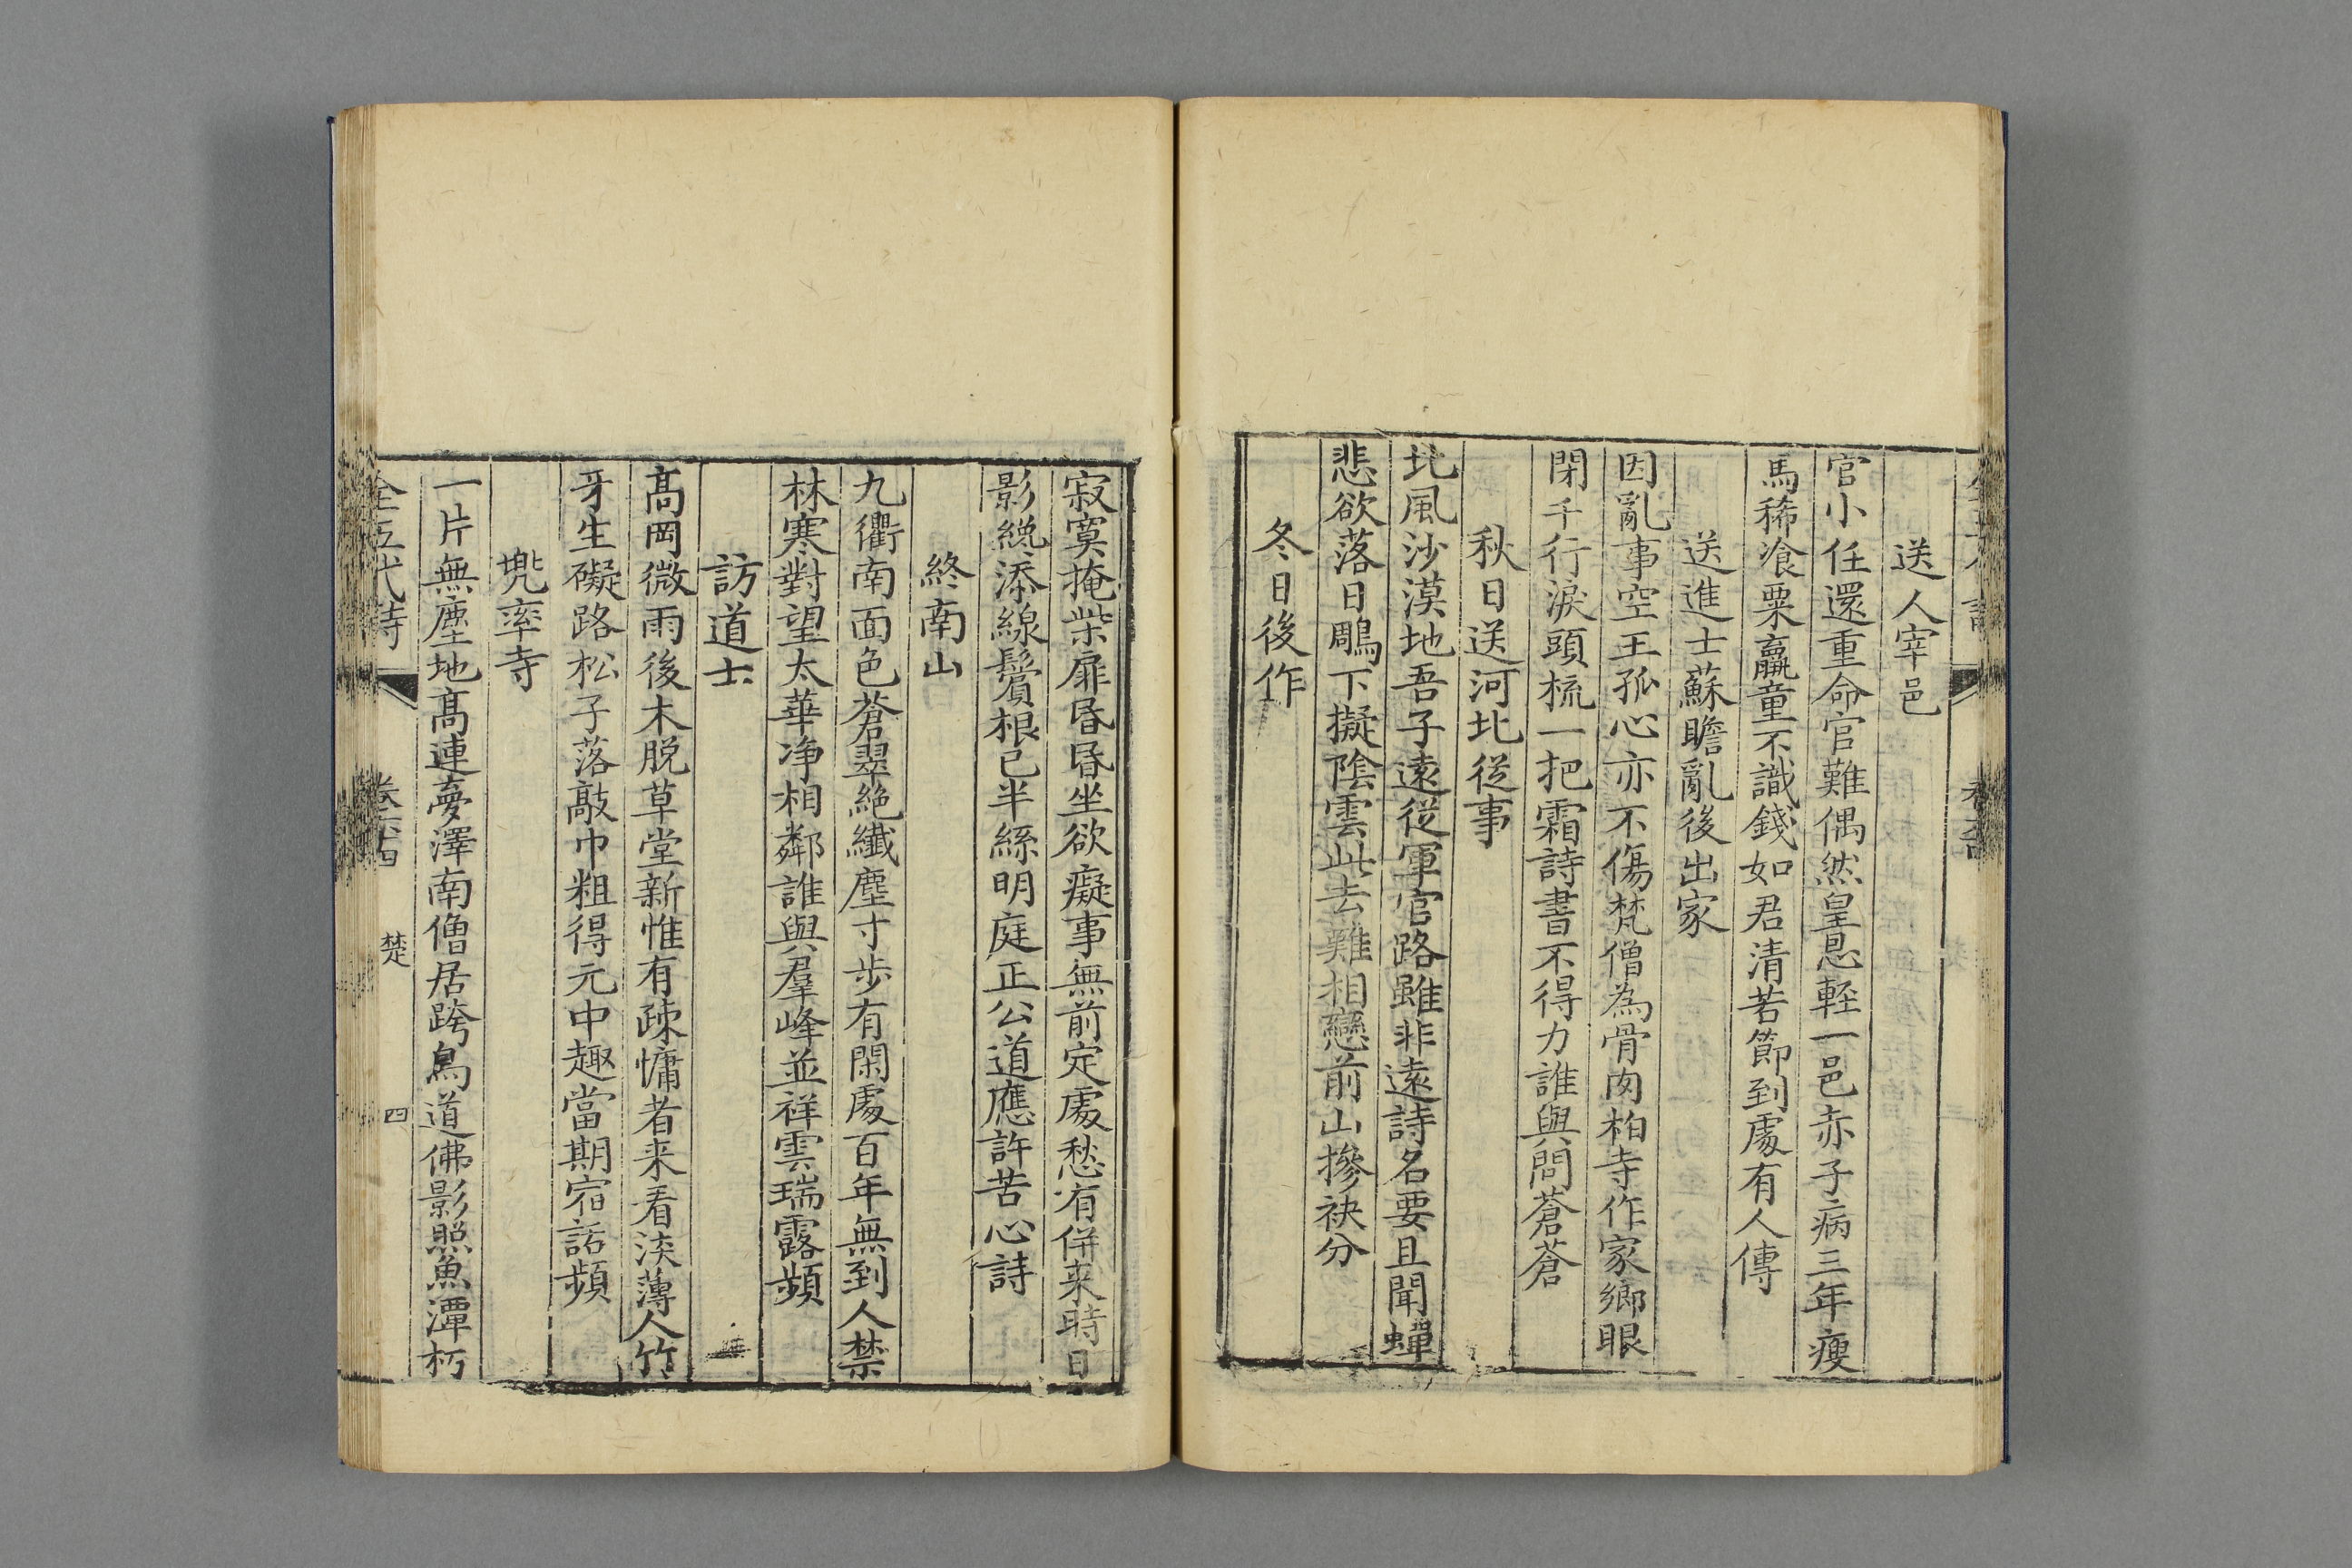 送人宰邑
官小任還重命官難偶然皇恩輕一邑赤子病三年瘦
馬稀飡粟羸童不識錢如君清苦節到處有人傳
送進士蘇瞻亂後出家
因亂事空王孤心亦不傷梵僧為骨肉柏寺作家鄉眼
閉千行淚頭梳一把霜詩書不得力誰與問蒼蒼
秋日送河北從事
北風沙漠地吾子遠從軍官路雖非遠詩名要且聞蟬
悲欲落日鵰下擬陰雲此去難相戀前山摻袂分
冬日後作
寂寞掩柴扉昏昏坐欲癡事無前定處愁有併来時日
影纔添線鬢根已半絲明庭正公道應許苦心詩
終南山
九衢南面色蒼翠絶纖塵寸步有閑處百年無到人禁
林寒對望太華净相鄰誰與羣峰並祥雲瑞露頻
訪道士
髙岡微雨後木脱草堂新惟有疎慵者来看淡薄人竹
牙生礙路松子落敲巾粗得元中趣當期宿話頻
兠率寺
一片無塵地髙連夢澤南僧居跨鳥道佛影照魚潭朽
全五代詩 卷六十四 楚 四